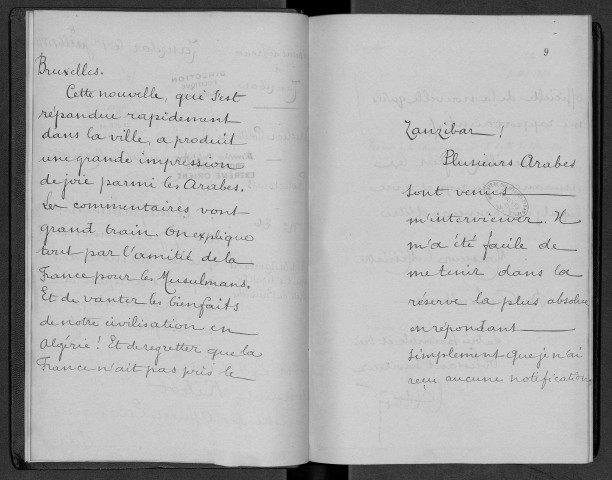 Bruxelles.
Cette nouvelle, qui s'est
répandue rapidement
dans la ville, a produit
une grande impression
de joie parmi les Arabes.
Les commentaires vont
grand train. On explique
tout par l'amitié de la
France pour les Musulmans.
Et de vanter les bienfaits
de notre civilisation en
Algérie! Et de regretter que la
France n'ait pas pris le
9
Zanzibar!
Plusieurs Arabes
sont venus
m'interviewer. Il
m'a été facile de
me tenir dans la
réserve la plus absolue
en répondant
simplement que je n'ai
reçu aucune notification